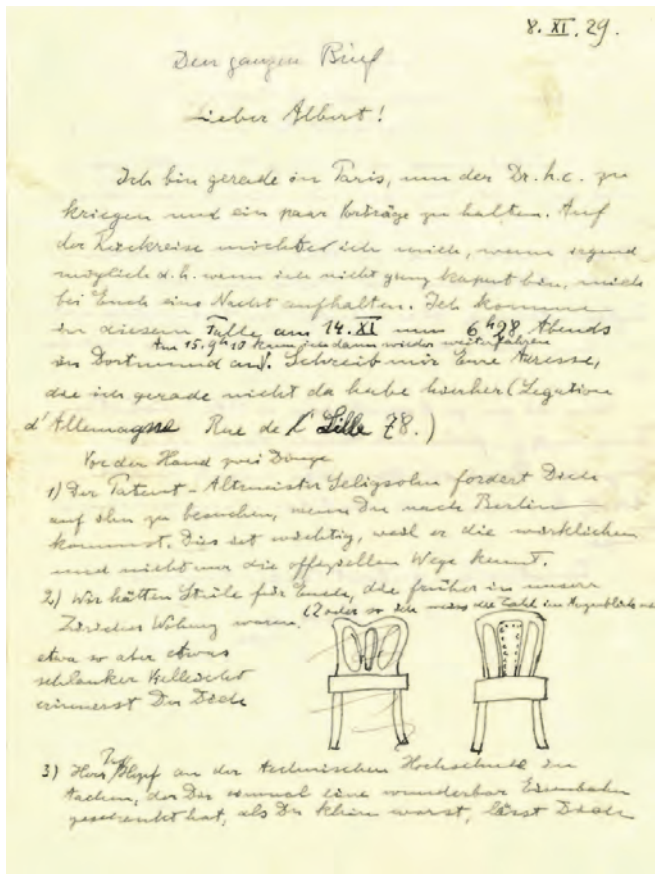 8. XI. 29.
Den ganzen Brief
Lieber Albert!
Ich bin gerade in Paris, um den Dr. h.c. zu
kriegen und ein paar Vorträge zu halten. Auf
der Rückreise möchte ich mich, wenn irgend
möglich d.h. wenn ich nicht ganz kaput bin, mich
bei Euch eine Nacht aufhalten. Ich komme
in diesem Falle am 14. XI um 6h28 Abends
Am 15. 9h10 kann ich dann wieder weiterfahren
in Dortmund an. Schreib mir Eure Adresse,
die ich gerade nicht da habe hierher (Legation
d'Allemagne Rue de Lille 78.)
Vor der Hand zwei Dinge
1) Der Patent-Altmeister Seligsohn fordert Dich
auf ihn zu besuchen, wenn Du nach Berlin
kommst. Dies ist wichtig, weil er die wirklichen
und nicht nur die offiziellen Wege kennt.
2) Wir hätten Stüle für Euch, die früher in unserer
(2 oder so ich weiss die Zahl im Augenblick
Züricher Wohnung waren.
etwa so aber etwas
schlanker Vielleicht
erinnerst Du Dich
3) Herr Hopf an der technischen Hochschule in
Aachen, der Dir einmal eine wunderbar Eisenbahn
geschenkt hat, als Du klein warst, lässt Dich